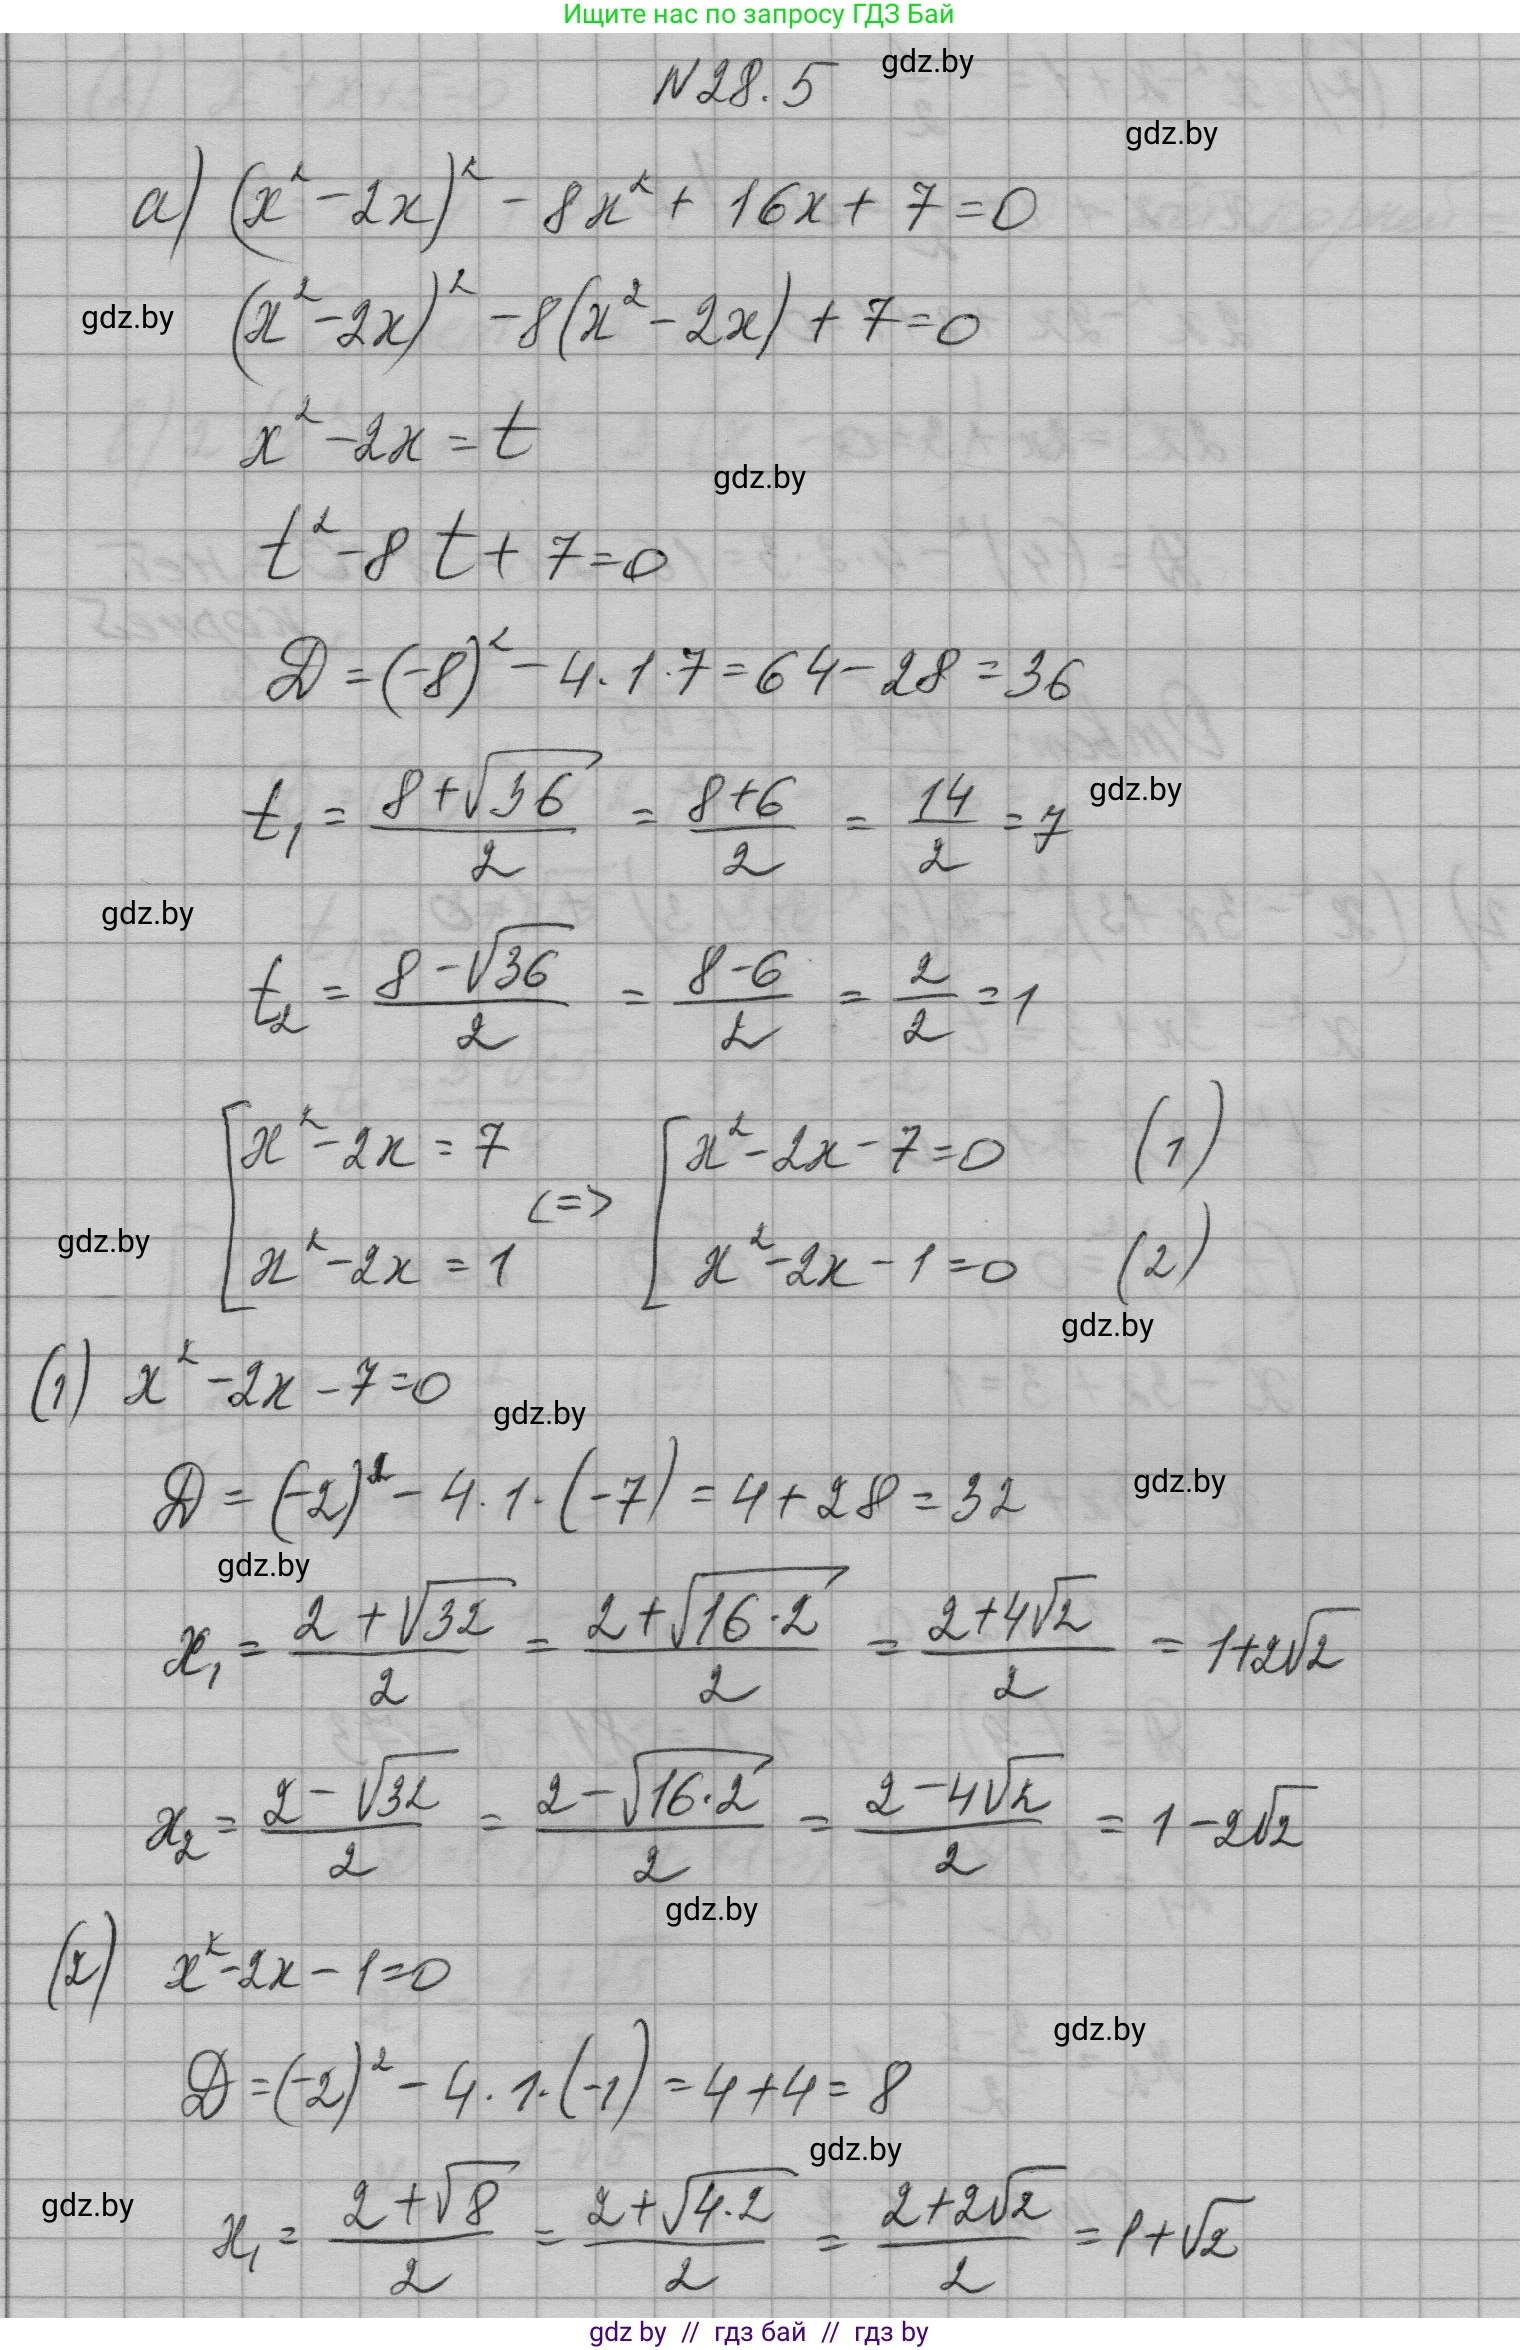 Ищите нас по запросу ГДЗ Бай
N28.5
gdz.by
gdz.by
а) (x² - 2x)² - 8x² + 16x + 7 = 0
gdz.by
(x² - 2x)² - 8(x² - 2x) + 7 = 0
x² - 2x = t
gdz.by
t² - 8t + 7 = 0
D = (-8)² - 4·1·7 = 64 - 28 = 36
t₁ = (8+√36)/2 = (8+6)/2 = 14/2 = 7
gdz.by
gdz.by
t₂ = (8-√36)/2 = (8-6)/2 = 2/2 = 1
[ x² - 2x = 7 <=> [ x² - 2x - 7 = 0 (1)
gdz.by
x² - 2x = 1 x² - 2x - 1 = 0 (2)
gdz.by
(1) x² - 2x - 7 = 0
gdz.by
D = (-2)² - 4·1·(-7) = 4 + 28 = 32
gdz.by
gdz.by
x₁ = (2+√32)/2 = (2+√16·2)/2 = (2+4√2)/2 = 1+2√2
x₂ = (2-√32)/2 = (2-√16·2)/2 = (2-4√2)/2 = 1-2√2
gdz.by
(2) x² - 2x - 1 = 0
gdz.by
D = (-2)² - 4·1·(-1) = 4+4 = 8
gdz.by
gdz.by
x₁ = (2+√8)/2 = (2+√4·2)/2 = (2+2√2)/2 = 1+√2
gdz by // гдз бай // гдз by